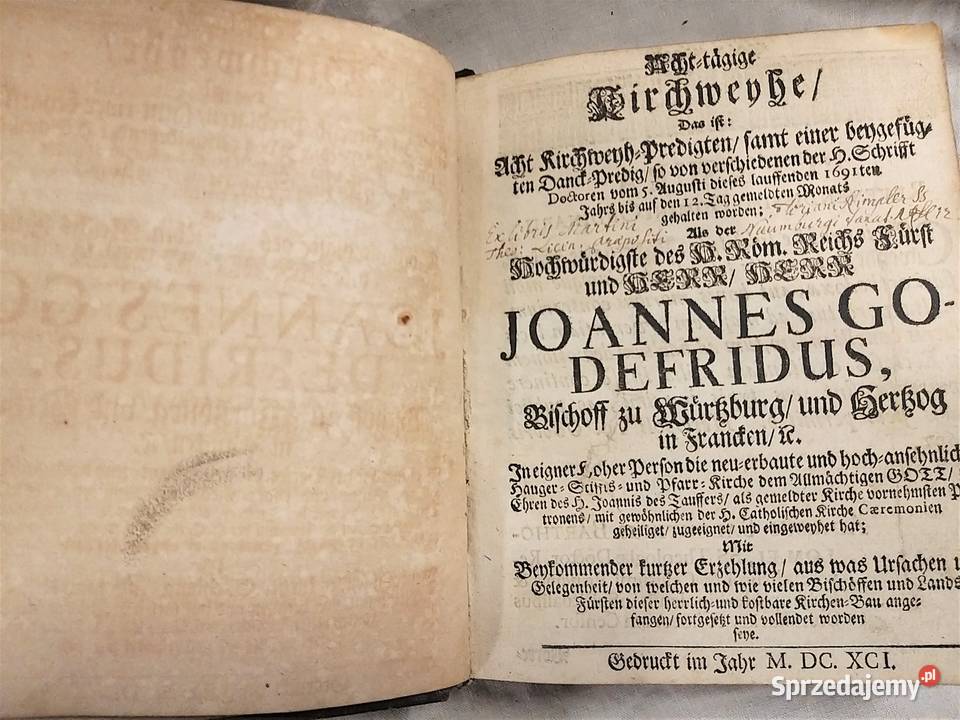 Acht-tägige
Kirchweyhe/
Das ist:
Acht Kirchweyh-Predigten/ samt einer beygefüg-
ten Danck-Predig/ so von verschiedenen der H. Schrifft
Doctoren vom 5. Augusti dieses lauffenden 1691ten
Jahrs bis auf den 12. Tag gemeldten Monats
gehalten worden;
Ex libris Martini Floriani Rimpler SS
Als der
Theo: Licen:
Hochwürdigste des H. Röm. Reichs Fürst
und HERR/ HERR
JOANNES GO-
DEFRIDUS,
Bischoff zu Würtzburg/ und Hertzog
in Francken/ ꝛc.
In eigner Hoher Person die neu-erbaute und hoch-ansehnlich
Hauger-Stiffts- und Pfarr-Kirche dem Allmächtigen GOTT/
Ehren des H. Joannis des Tauffers/ als gemeldter Kirche vornehmsten P
tronens/ mit gewöhnlichen der H. Catholischen Kirche Cæremonien
geheiliget/ zugeeignet/ und eingeweyhet hat;
Mit
Beykommender kurtzer Erzehlung/ aus was Ursachen u
Gelegenheit/ von welchen und wie vielen Bischöffen und Lands
Fürsten dieser herrlich- und kostbare Kirchen-Bau ange-
fangen/ fortgesetzt und vollendet worden
seye.
Gedruckt im Jahr M. DC. XCI.
Sprzedajemy.pl